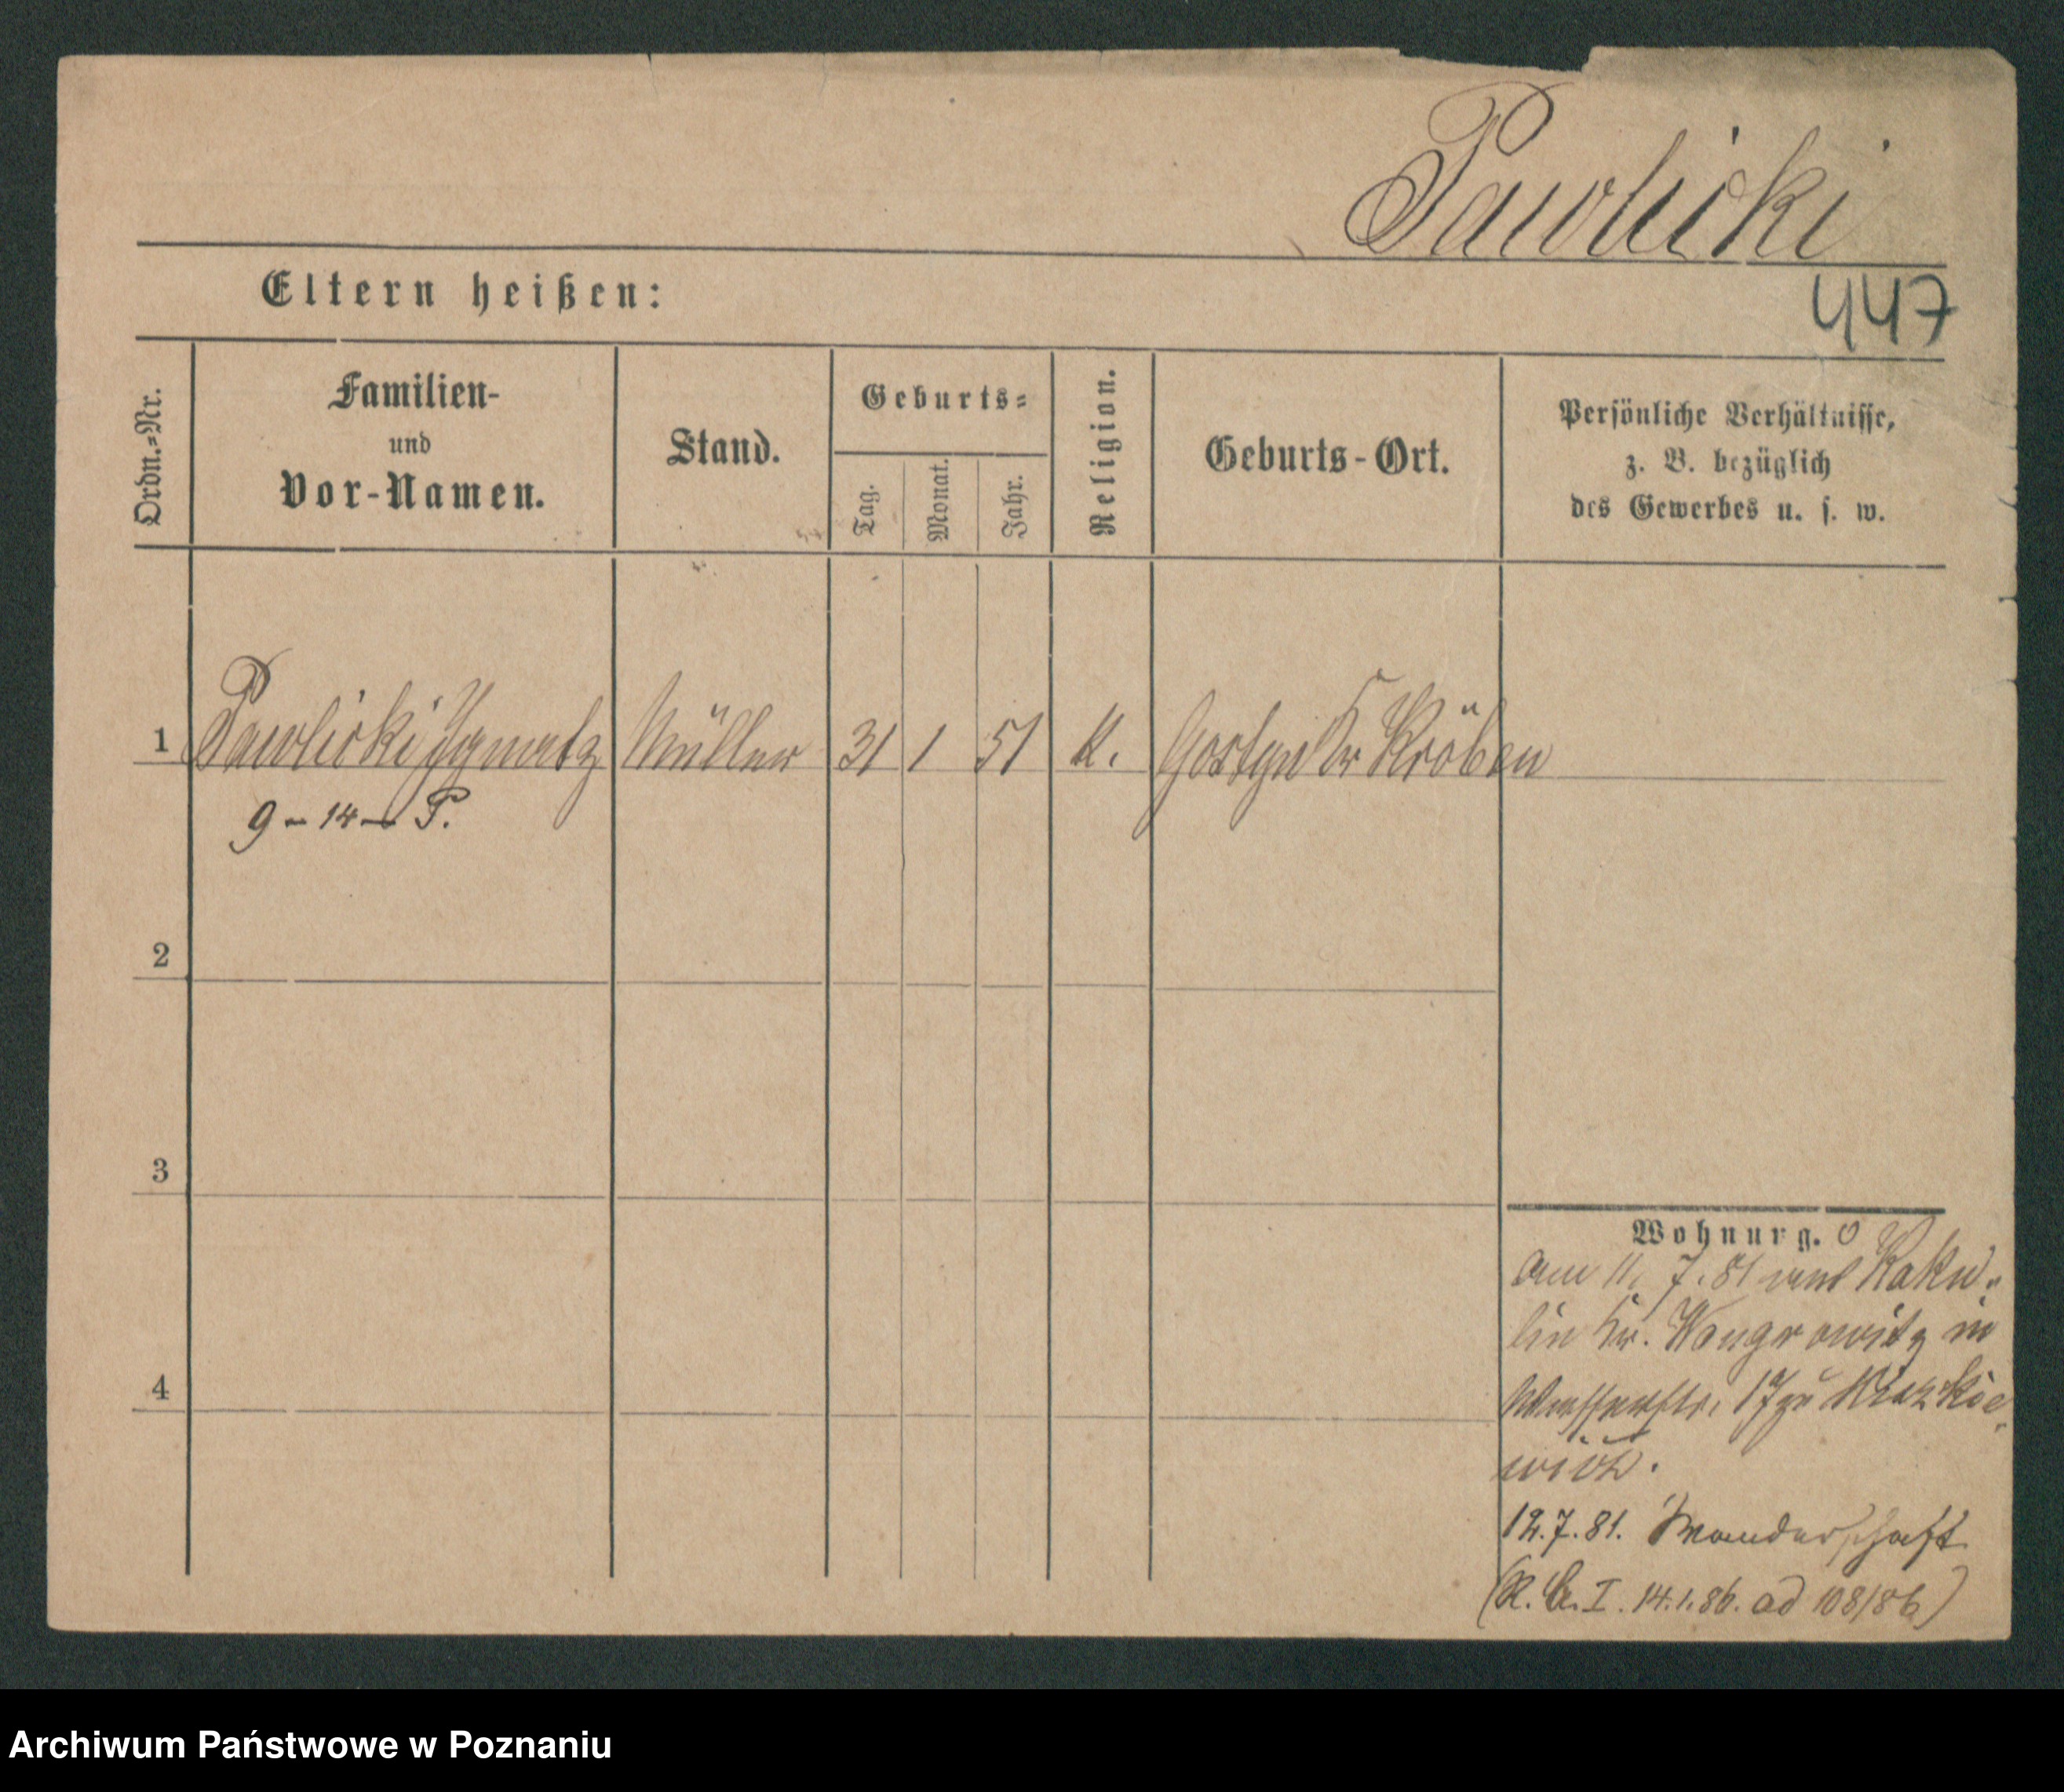 Pawlicki
447
Eltern heißen:
Ordn.=Nr.
Familien-
und
Vor-Namen.
Stand.
Geburts=
Tag.
Monat.
Jahr.
Religion.
Geburts-Ort.
Persönliche Verhältnisse,
z. B. bezüglich
des Gewerbes u. s. w.
1 Pawlicki Ignatz Müller 31 1 51 K. Gostyn Kr Kröben
9-14- P.
2
3
4
Wohnung.
am 11. 7. 81 aus Raku=
lin Kr. Wongrowitz in
17 zu
wicz.
12.7.81. Wanderschaft
(R. B. I. 14.1.86. ad 108/86)
Archiwum Państwowe w Poznaniu